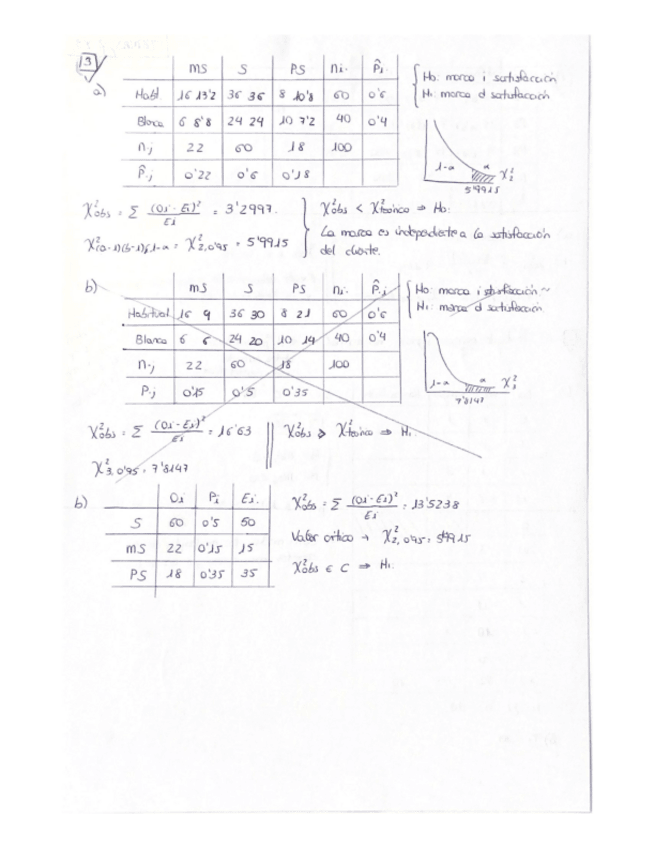 13
a)
mS S PS ni. P̂i.
Habl. 16 13'2 36 36 8 10'8 60 0'6
Blanca 6 8'8 24 24 10 7'2 40 0'4
n.j 22 60 18 100
P̂.j 0'22 0'6 0'18
H0: marca i satisfacción
H1: marca d satisfacción
1-α α χ²2
5'9915
χ²obs = Σ (Oi-Ei)²/Ei = 3'2997.
χ²(a-1)(b-1); 1-α = χ²2,0'95 = 5'9915
χ²obs < χ²teórico ⇒ H0.
La marca es independiente a la satisfacción
del cliente.
b)
mS S PS ni. P̂.j
Habitual 16 9 36 30 8 21 60 0'6
Blanca 6 6 24 20 10 14 40 0'4
n.j 22 60 18 100
P.j 0'15 0'5 0'35
H0: marca i satisfacción ~
H1: marca d satisfacción
1-α α χ²3
7'8147
χ²obs = Σ (Oi-Ei)²/Ei = 16'63
χ²obs > χ²teórico ⇒ H1.
χ²3,0'95 = 7'8147
b)
Oi Pi Ei.
S 60 0'5 50
mS 22 0'15 15
PS 18 0'35 35
χ²obs = Σ (Oi-Ei)²/Ei = 13'5238
Valor crítico → χ²2,0'95 = 5'9915
χ²obs ∈ C ⇒ H1.